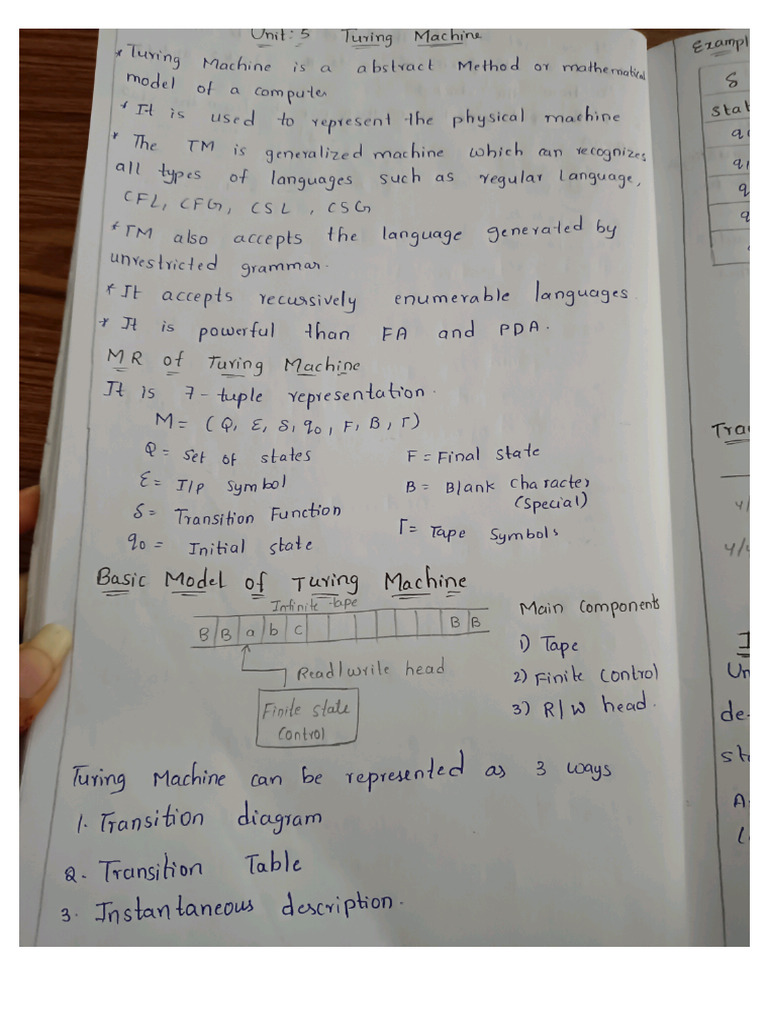 Unit: 5 Turing Machine
* Turing Machine is a abstract Method or mathematical
model of a computer
* It is used to represent the physical machine
* The TM is generalized machine which can recognizes
all types of languages such as regular language,
CFL, CFG, CSL, CSG
* TM also accepts the language generated by
unrestricted grammar.
* It accepts recursively enumerable languages
* It is powerful than FA and PDA.
MR of Turing Machine
It is 7-tuple representation.
M = (Q, Ɛ, δ, q0, F, B, Γ)
Q = set of states
F = Final state
Ɛ = I/p symbol
B = Blank character
(special)
δ = Transition Function
Γ = Tape Symbols
q0 = Initial state
Basic Model of Turing Machine
Infinite tape
B B a b c B B
Read/write head
Finite state
control
Main components
1) Tape
2) Finite control
3) R/W head.
Turing Machine can be represented as 3 ways
1. Transition diagram
2. Transition Table
3. Instantaneous description.
Exampl
δ
stat
q
q1
q
q
Tra
4/
I
Un
de
st
A